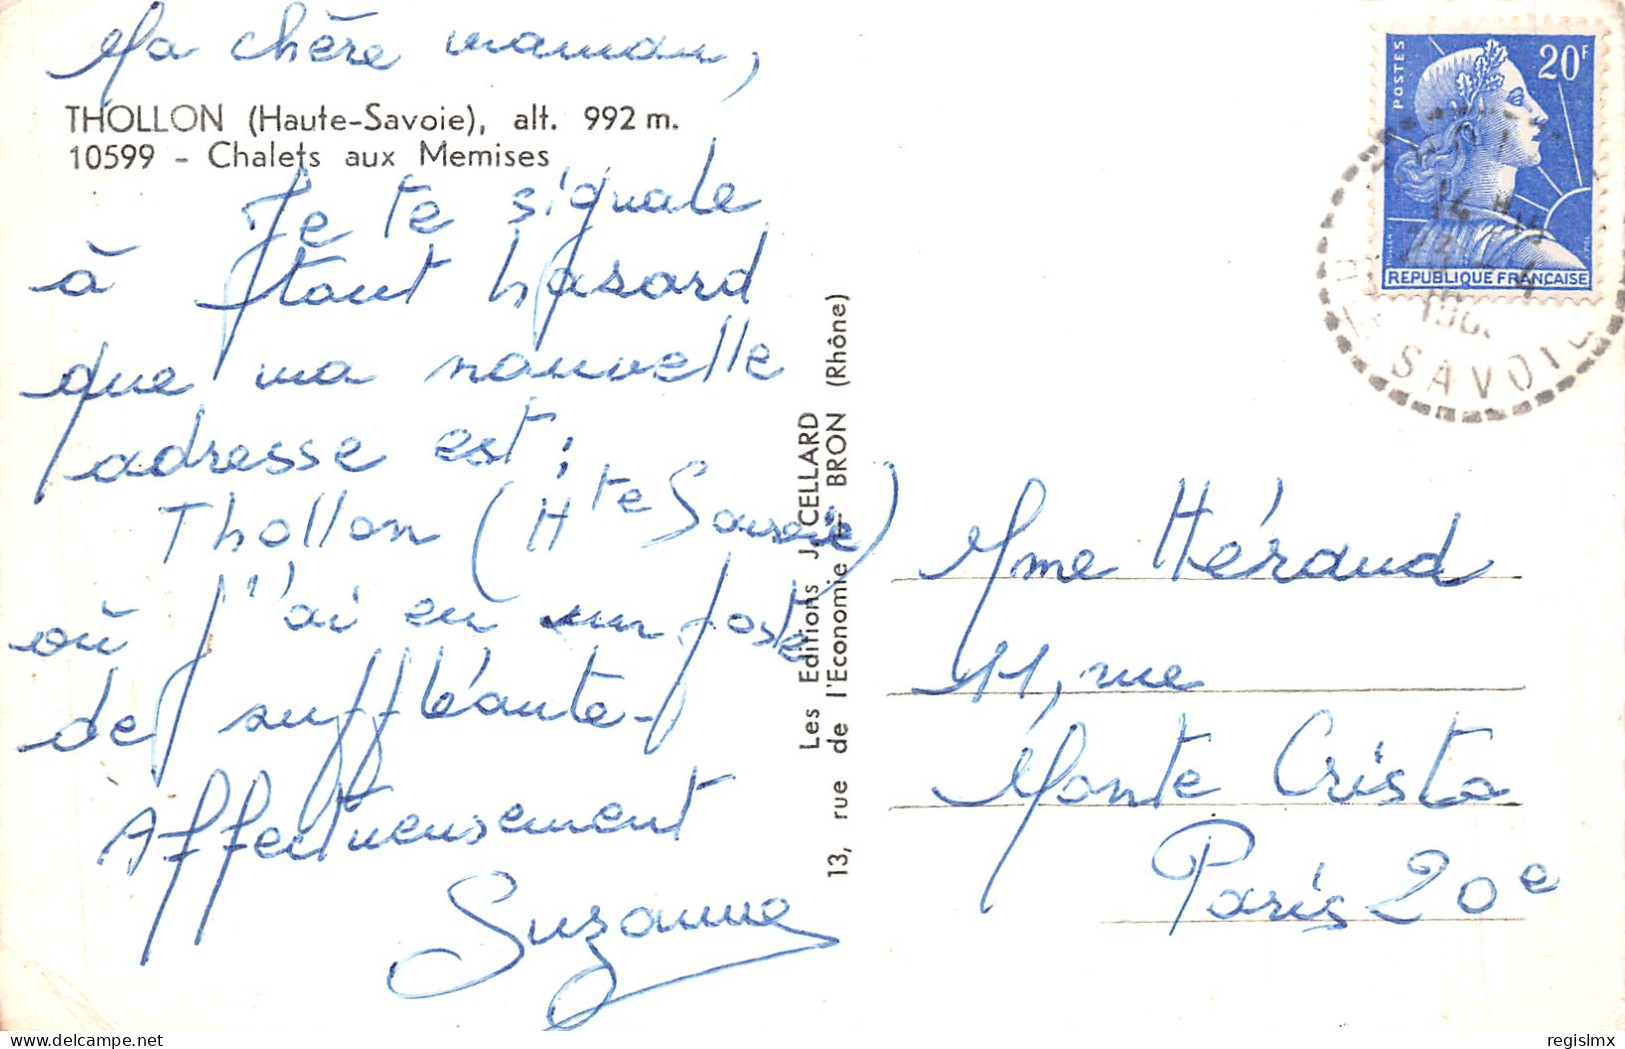 Ma chère maman,
THOLLON (Haute-Savoie), alt. 992 m.
10599 - Chalets aux Memises
Je te signale
à tout hasard
que ma nouvelle
adresse est :
Thollon (Hte Savoie)
où j'ai eu un poste
de suppléante.
Affectueusement
Suzanne
Les Editions J. CELLARD
13, rue de l'Economie - BRON (Rhône)
POSTES
20F
REPUBLIQUE FRANÇAISE
14 H
SAVOIE
Mme Héraud
11, rue
Monte Cristo
Paris 20e
delcampe.net
regislmx